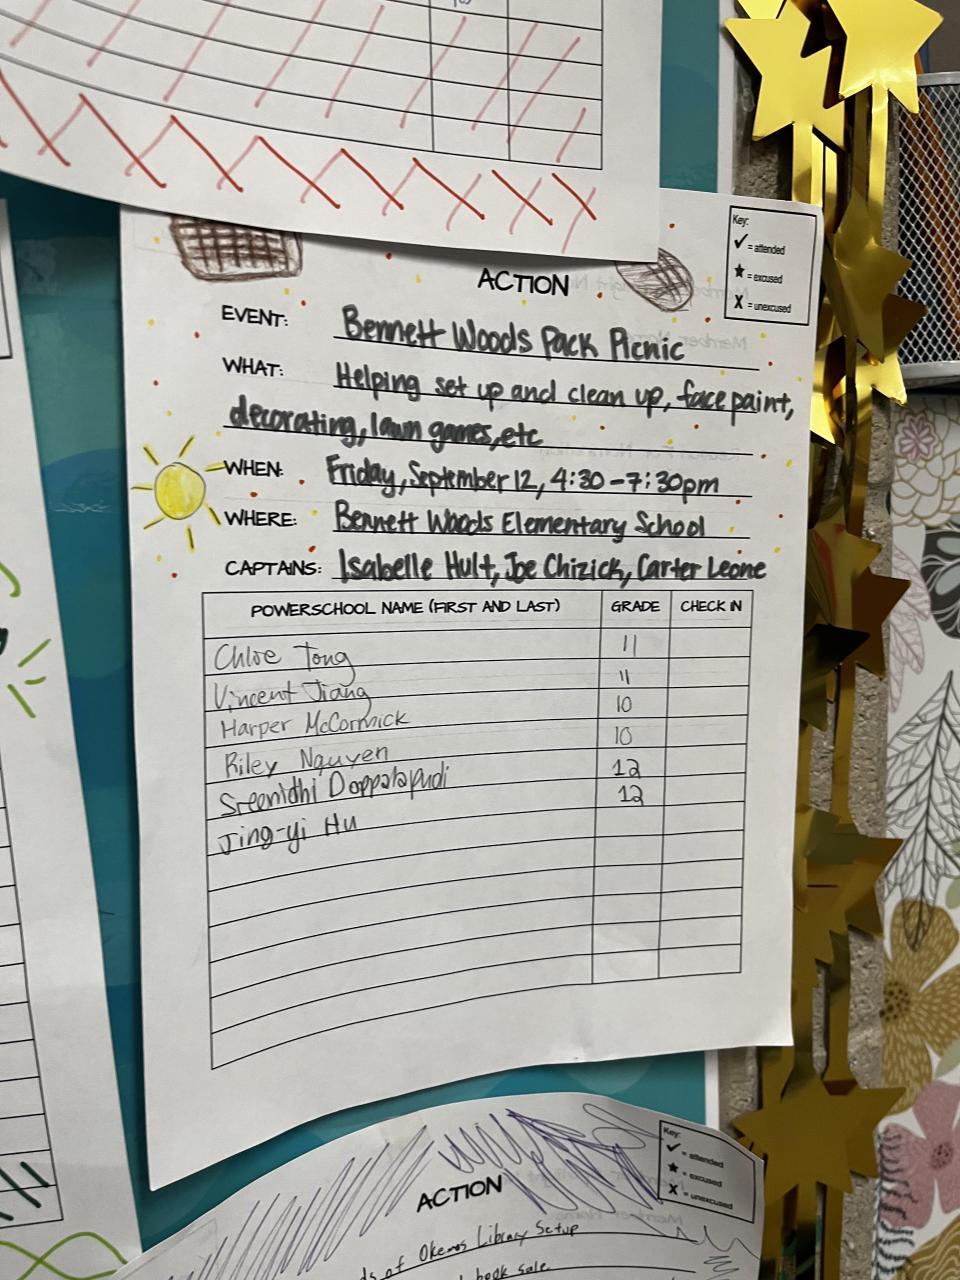 Key:
✓ = attended
★ = excused
X = unexcused
ACTION
EVENT: Bennett Woods Pack Picnic
WHAT: Helping set up and clean up, face paint,
decorating, lawn games, etc
WHEN: Friday, September 12, 4:30-7:30pm
WHERE: Bennett Woods Elementary School
CAPTAINS: Isabelle Hult, Joe Chizick, Carter Leone
POWERSCHOOL NAME (FIRST AND LAST) GRADE CHECK IN
Chloe Tong 11
Vincent Jiang 11
Harper McCormick 10
Riley Nguyen 10
Sreenidhi Doppalapudi 12
Jing-yi Hu 12
Key:
✓ = attended
★ = excused
X = unexcused
ACTION
of Okemos Library Setup
book sale